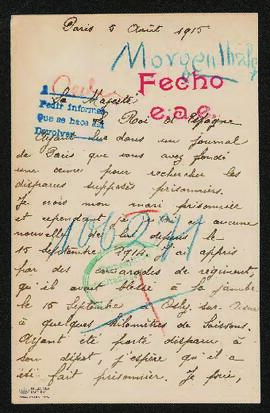 Paris 5 Août 1915
Morgenthaler
Fecho
e.a.e.
Sa Majesté
Le Roi d'Espagne
Pedir informes
Que se haga
Devolver
Ayant lu dans un journal
de Paris que vous avez fondé
une œuvre pour rechercher les
disparus supposés prisonniers.
Je crois mon mari prisonnier
et cependant je n'ai eu aucune
nouvelle de lui depuis le
15 septembre 1914. J'ai appris
par des camarades de régiment,
qu'il avait été blessé à la jambe
le 15 Septembre à Osly, sur-Aisne
à quelques kilomètres de Soissons.
Ayant été porté disparu à
son dépôt, j'espère qu'il a
été fait prisonnier. Je
106211